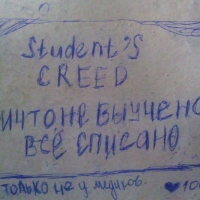 Student'S
CREED
ИЧТО НЕ ВЫУЧЕНО
ВСЁ СПИСАНО
ТОЛЬКО НЕ У медиков.